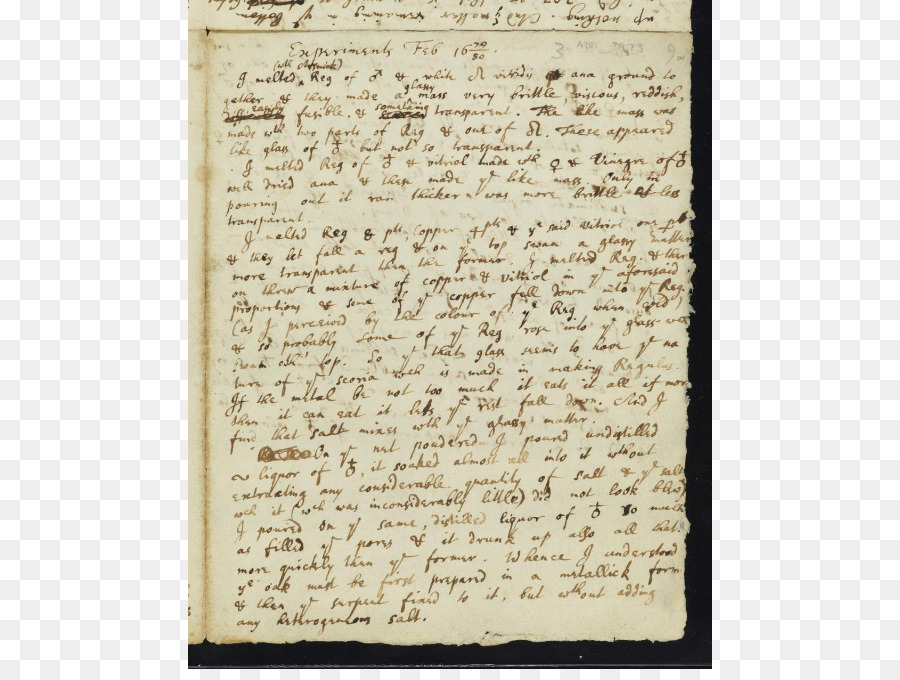 Experiments Feb 16 79/80.
(wth Arsnick)
I melted Reg of ♂ & white vividis ana ground to
glassy
gether & they made a mass very brittle viscous, reddish,
easily something
fusible, & transparent. The like mass was
made wth two parts of Reg & one of. These appeared
like glass of ♁ but not so transparent.
I melted Reg of ♁ & vitriol made wth ♀ & Vinegre of ♁
well dried ana & these made ye like mass Only in
pouring out it ran thicker was more brittle & less
transparent.
I melted Reg 8 pts, Copper 4 pts & ye said Vitriol one pt
& they let fall a reg & on ye top swam a glassy matter
more transparent then the former. I melted Reg. & then
on threw a mixture of copper & Vitriol in ye aforesaid
proportions & some of ye copper fell down into ye Reg.
(as I perceivd by the colour of ye Reg when cold)
& so probably some of ye Reg rose into ye glass wch
swam oth' top. So yt that glass seems to have ye na
ture of ye scoria wch is made in making Regulus.
If the metal be not too much it eats it all if more
then it can eat it lets ye rest fall down. And I
find that salt mixes wth ye glassy matter.
On ye net poudered I poured undistilled
liquor of ♁, it soaked almost all into it without
extracting any considerable quantity of salt & ye salt
wch it (wch was inconsiderably little) did not look blew)
I poured on ye same, distilled liquor of ♁ so much
as filled ye pores & it drunk up also all that
more quickly then ye former. Whence I understood
ye oak must be first prepared in a metallick form
& then ye serpent fixed to it, but without adding
any heterogeneous salt.